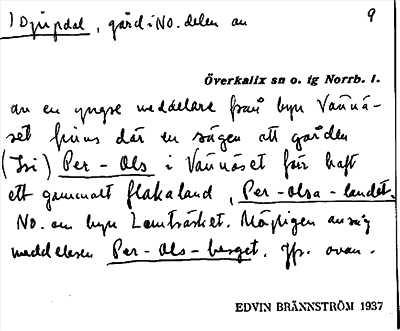 1) Djupdal, gård i NO. delen av 9
Överkalix sn o. tg Norrb. l.
av en yngre meddelare från byn Vännä-
set finns där en sägen att gården
(Isi) Per-Ols i Vännäset förr haft
ett gammalt flakaland, Per-olsa-landet.
NO. om byn Lomträsket. Möjligen avsåg
meddelaren Per-Ols-berget. Jfr. ovan.
EDVIN BRÄNNSTRÖM 1937